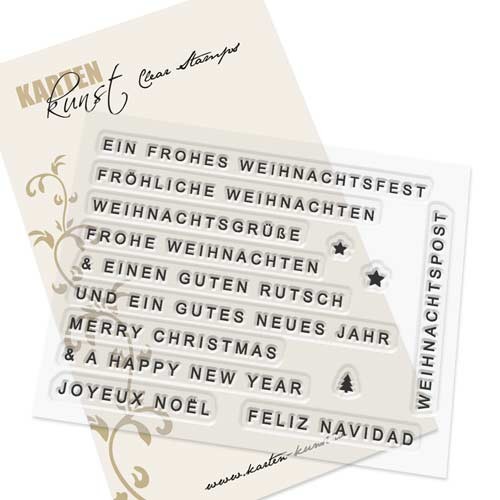 KARTEN
kunst
Clear Stamps
EIN FROHES WEIHNACHTSFEST
FRÖHLICHE WEIHNACHTEN
WEIHNACHTSGRÜßE
FROHE WEIHNACHTEN
& EINEN GUTEN RUTSCH
UND EIN GUTES NEUES JAHR
MERRY CHRISTMAS
& A HAPPY NEW YEAR
JOYEUX NOËL
FELIZ NAVIDAD
WEIHNACHTSPOST